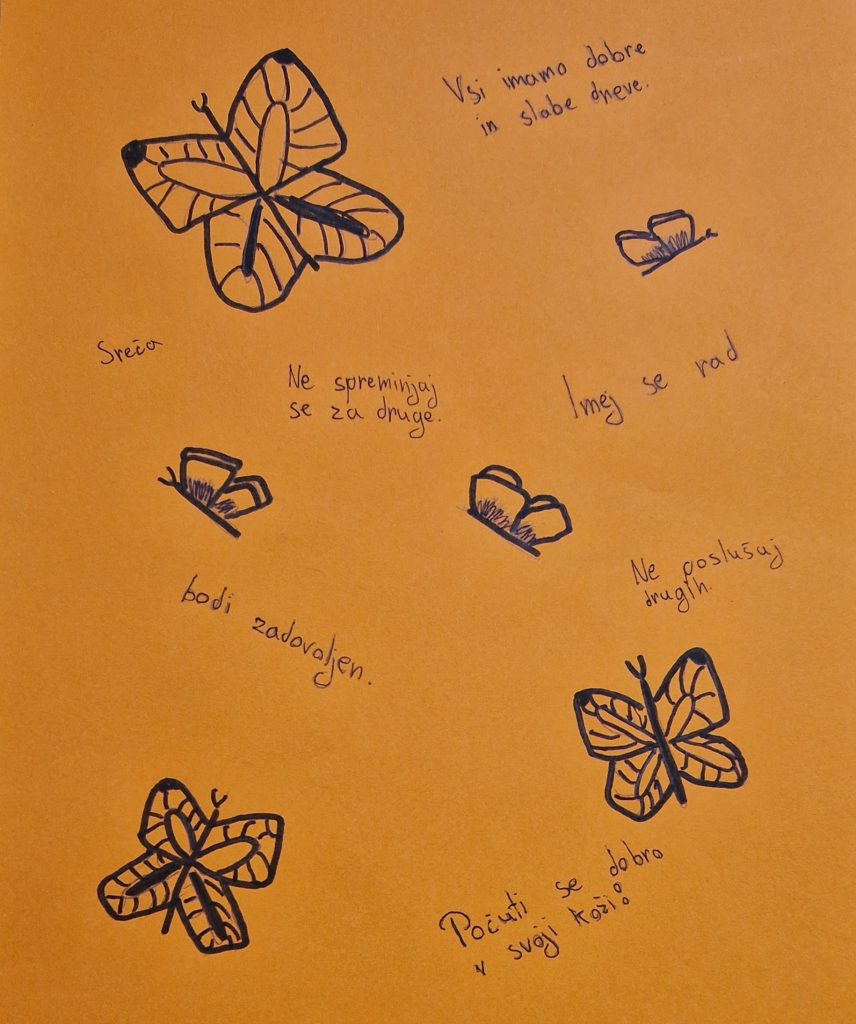 Vsi imamo dobre
in slabe dneve.
Sreča
Ne spreminjaj
se za druge.
Imej se rad
Ne poslušaj
drugih.
bodi zadovoljen.
Počuti se dobro
v svoji koži